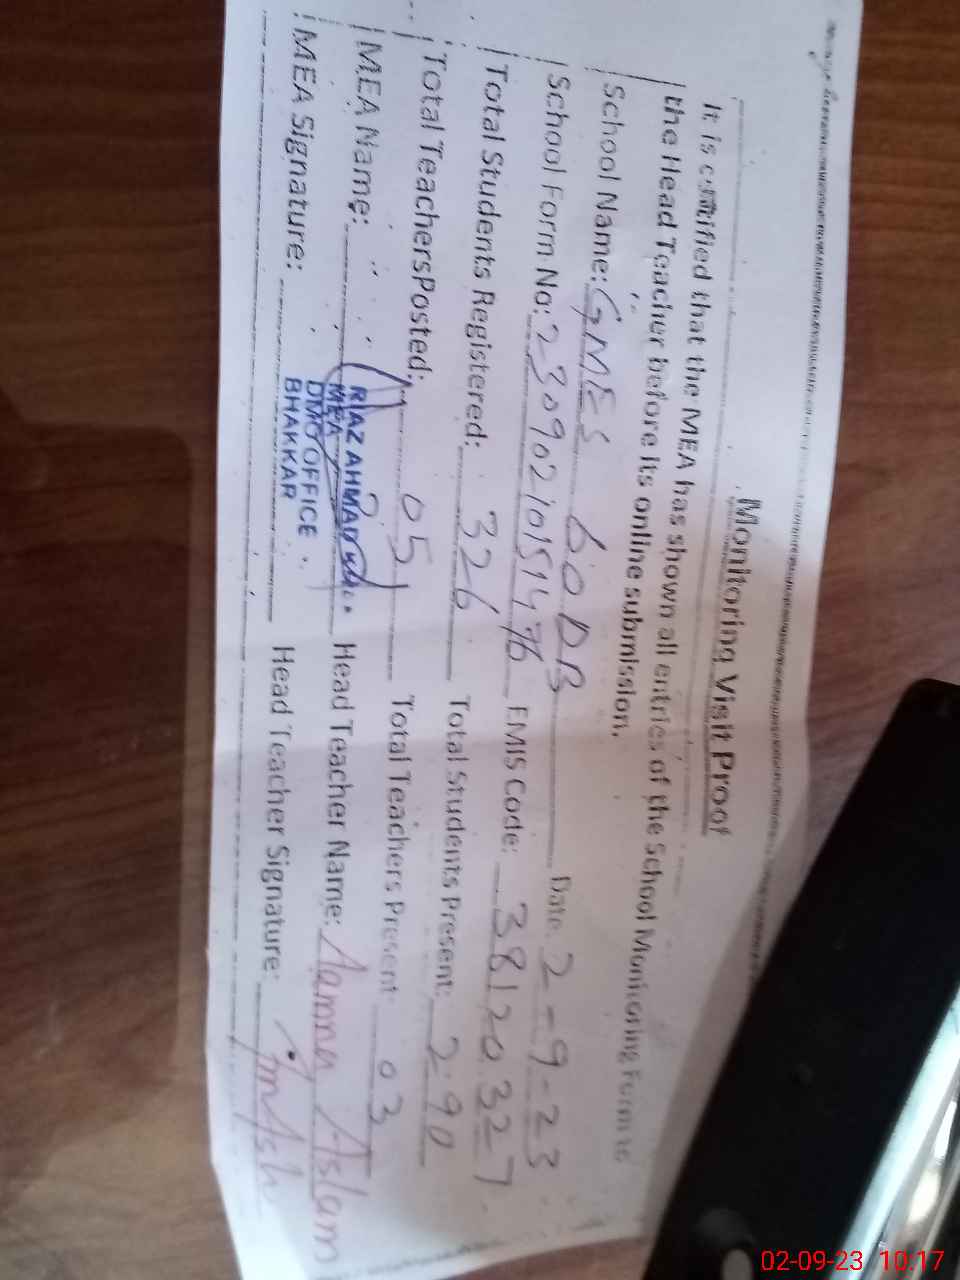 Monitoring Visit Proof
It is certified that the MEA has shown all entries of the School Monitoring Form to
the Head Teacher before its online submission.
School Name: GMES 60 DB Date: 2-9-23
School Form No: 23090210151476 EMIS Code: 38120327
Total Students Registered: 326 Total Students Present: 290
Total TeachersPosted: 05 Total Teachers Present: 03
MEA Name: RIAZ AHMAD Head Teacher Name: Aamna Aslam
MEA
DMO OFFICE
BHAKKAR
MEA Signature: Head Teacher Signature:
02-09-23 10:17